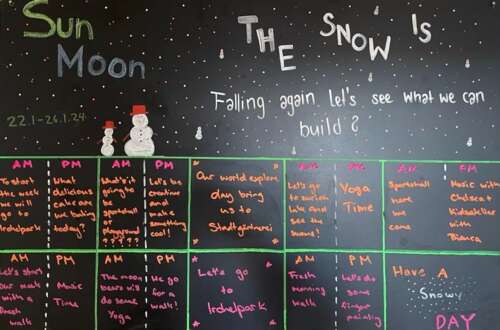 Sun
Moon
THE SNOW IS
Falling again let's see what we can
build?
22.1-26.1.24
AM PM AM PM
AM PM AM PM
To start
the week
we will
go to
Irchelpark
What
delicious
cake are
we baking
today?
What's it
going to
be
sportshall
or
playground
??????
Let's be
creative
and
make
something
cool!
Our world explore
day bring
us to
Stadtgärtnerei
Let's go
to zurich
lake and
see the
swans!
Yoga
Time
Sportshall
here
we
come
Music with
Chelsea &
Kidsatelier
with
Bianca
AM PM
Let's start
our week
with a
fresh
walk
Music
Time
The moon
bears will
do some
Yoga
We go
for a
walk!
Let's go
to
Irchelpark
Fresh
morning
walk
Let's do
some
finger
painting
Have A
Snowy
DAY